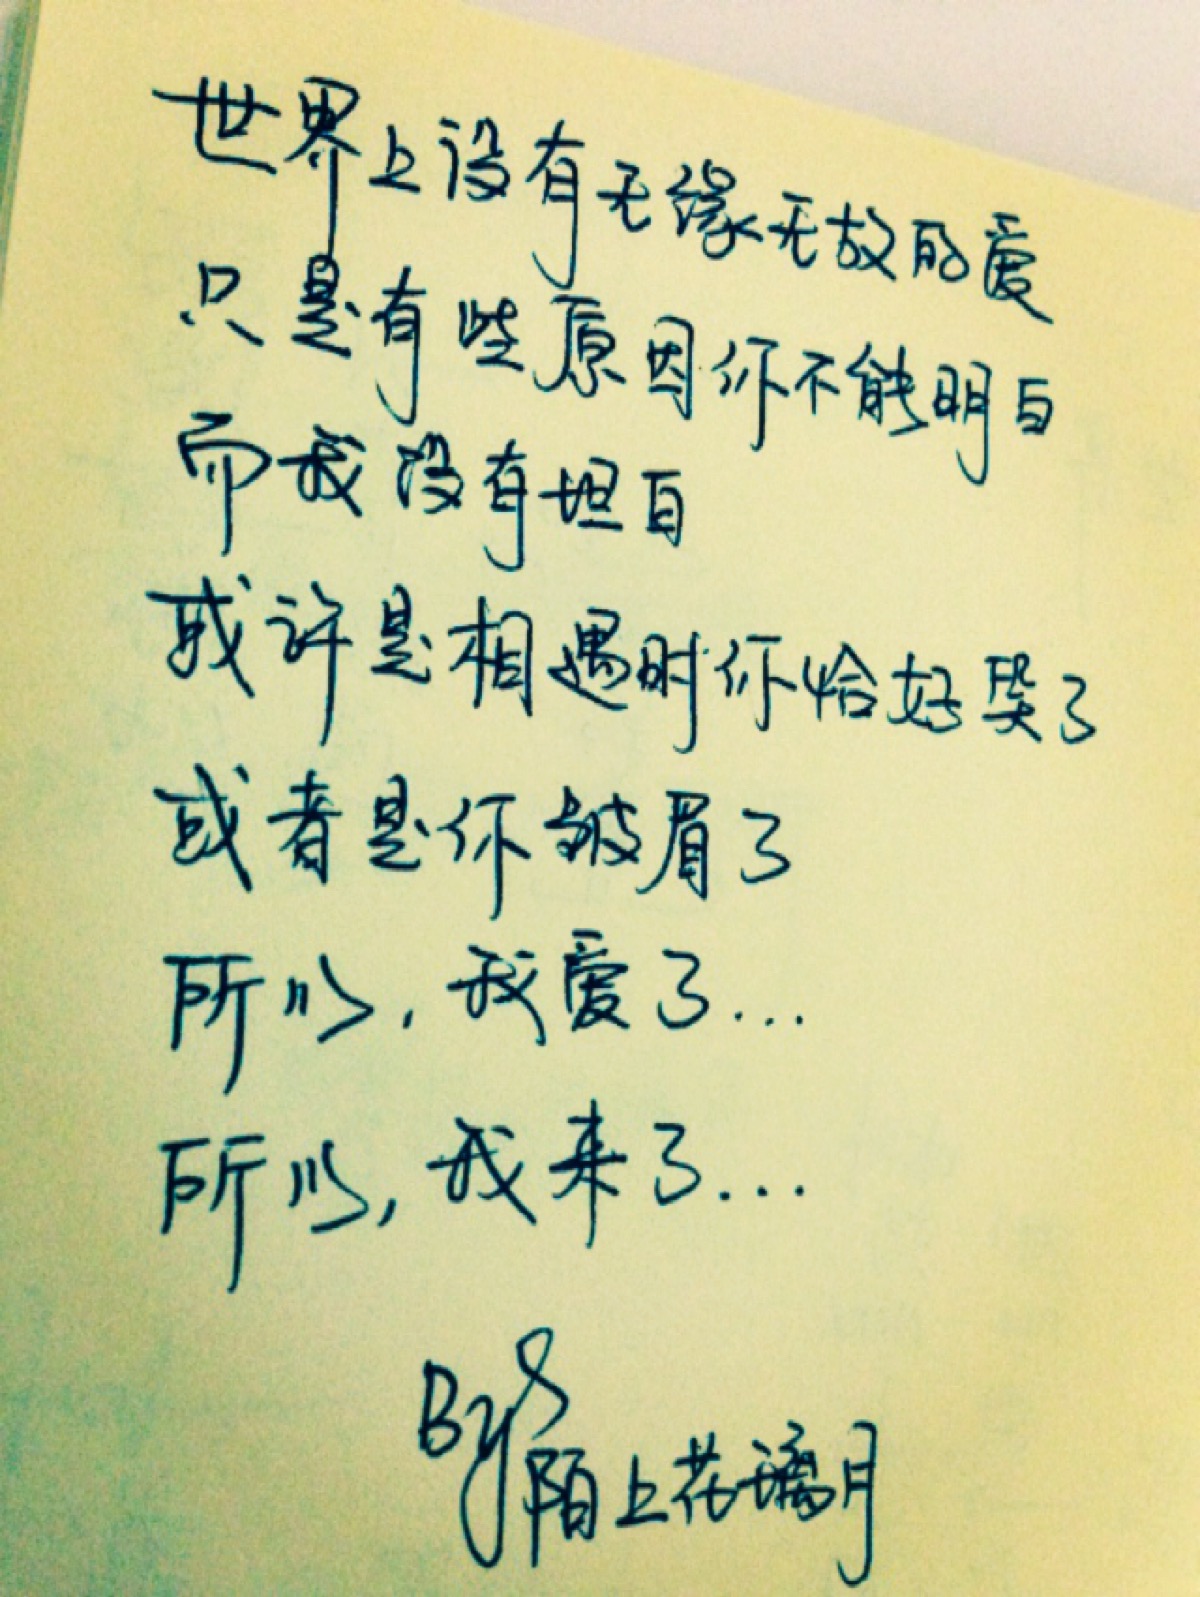 世界上没有无缘无故的爱
只是有些原因你不能明白
而我没有坦白
或许是相遇时你恰好哭了
或者是你皱眉了
所以,我爱了...
所以,我来了...
By
陌上花璃月